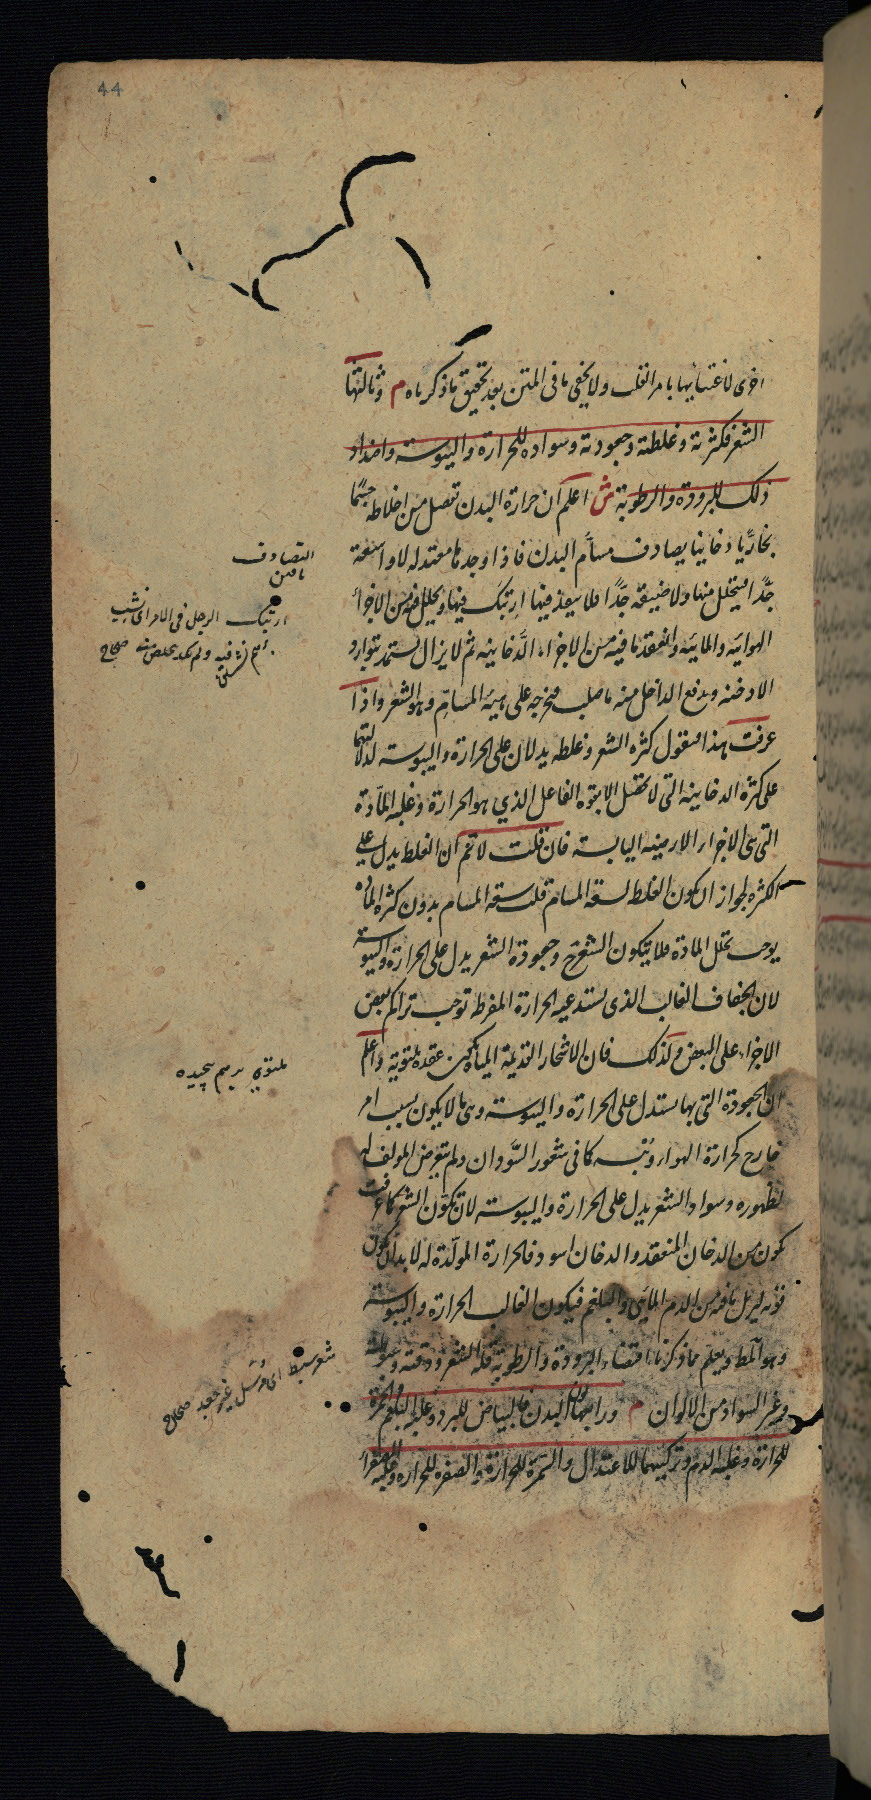 44
اخرى لاغتنائها بامر القلب ولا يخفى ما فى المتن بعد تحقيق ما ذكرناه م وثالثها
الشعر فكثرته وغلظته وجعودته وسواده للحرارة واليبوسة واضداد
ذلك للبرودة والرطوبة ش اعلم ان حرارة البدن تفصل من اخلاطه جسما
بخاريا دخانيا يصادف مسام البدن فاذا وجدها معتدله لا واسعة
جدا فيتحلل منها ولا ضيقة جدا فلا ينفذ فيها ارتبك فيها وتحلل ما فيه من الاجزاء
الهوائيه والمائيه وانعقد ما فيه من الاجزاء الدخانيه ثم لا يزال يستمد بتوارد
الادخنه ويدفع الداخل منه ما صلب فيخرجه على هيئة المسام وهو الشعر واذا
عرفت هذا فنقول كثرة الشعر وغلظه يدلان على الحرارة واليبوسه لدلالتهما
على كثرة الدخانيه التى لا تحصل الا بقوة الفاعل الذي هو الحرارة وغلبه المادة
التى هى الاجزاء الارضيه اليابسه فان قلت لا نم ان الغلظ يدل على
الكثره لجواز ان يكون الغلظ لسعة المسام قلت سعة المسام بدون كثرة المادة
يوجب تحلل المادة فلا يتكون الشعر ح وجعودة الشعر يدل على الحرارة واليبوسة
لان الجفاف الغالب الذى تستدعيه الحرارة المفرطه توجب تراكم بعض
الاجزاء على البعض ولذلك فان الاشجار القديمة المياه تكون عقده ملتوية واعلم
ان الجعودة التى بها يستدل على الحرارة واليبوسه وهى ما لا يكون بسبب امر
خارج كحرارة الهواء ويبسه كما فى شعور السودان ولم يتعرض المولف له
لظهوره وسواد الشعر يدل على الحرارة واليبوسه لان تكون الشعر كما عرفت
يكون من الدخان المنعقد والدخان اسود فالحرارة المولدة له لا بد ان يكون
قويه ليزيل ما فيه من الدم المائى والبلغم فيكون الغالب الحرارة واليبوسة
وهو المط ويعلم مما ذكرنا اقتضاء البرودة والرطوبة قلة الشعر ودقته وسبوطته
وغير السواد من الالوان م ورابعها لون البدن فالبياض للبرد وغلبة البلغم والحمرة
للحرارة وغلبه الدم وتركيبهما للاعتدال والسمرة للحرارة والصفره للحراره وغلبة الصفراء
التصادف
يافتن
ارتبك الرجل فى الامر اى نشب
فيه ولم يكد يتخلص منه صحاح
ملتوي برهم پيچيده
شعر سبط اى مسترسل غير جعد صحاح